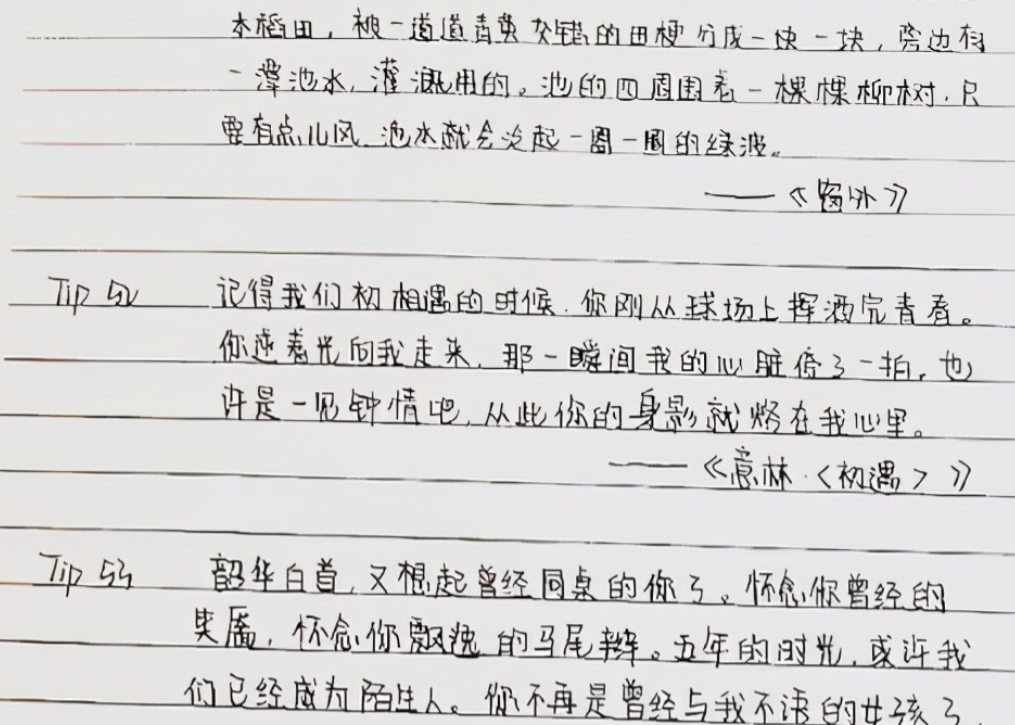 本稻田，被一道道青黄交错的田梗分成一块一块，旁边有
一潭池水，灌溉用的。池的四周围着一棵棵柳树，只
要有点儿风，池水就会泛起一圈一圈的绿波。
——《窗外》
Tip 52 记得我们初相遇的时候，你刚从球场上挥洒完青春。
你逆着光向我走来，那一瞬间我的心脏停了一拍，也
许是一见钟情吧，从此你的身影就烙在我心里。
——《意林·〈初遇〉》
Tip 53 韶华白首，又想起曾经同桌的你了。怀念你曾经的
笑靥，怀念你飘逸的马尾辫。五年的时光，或许我
们已经成为陌生人。你不再是曾经与我不语的女孩了，